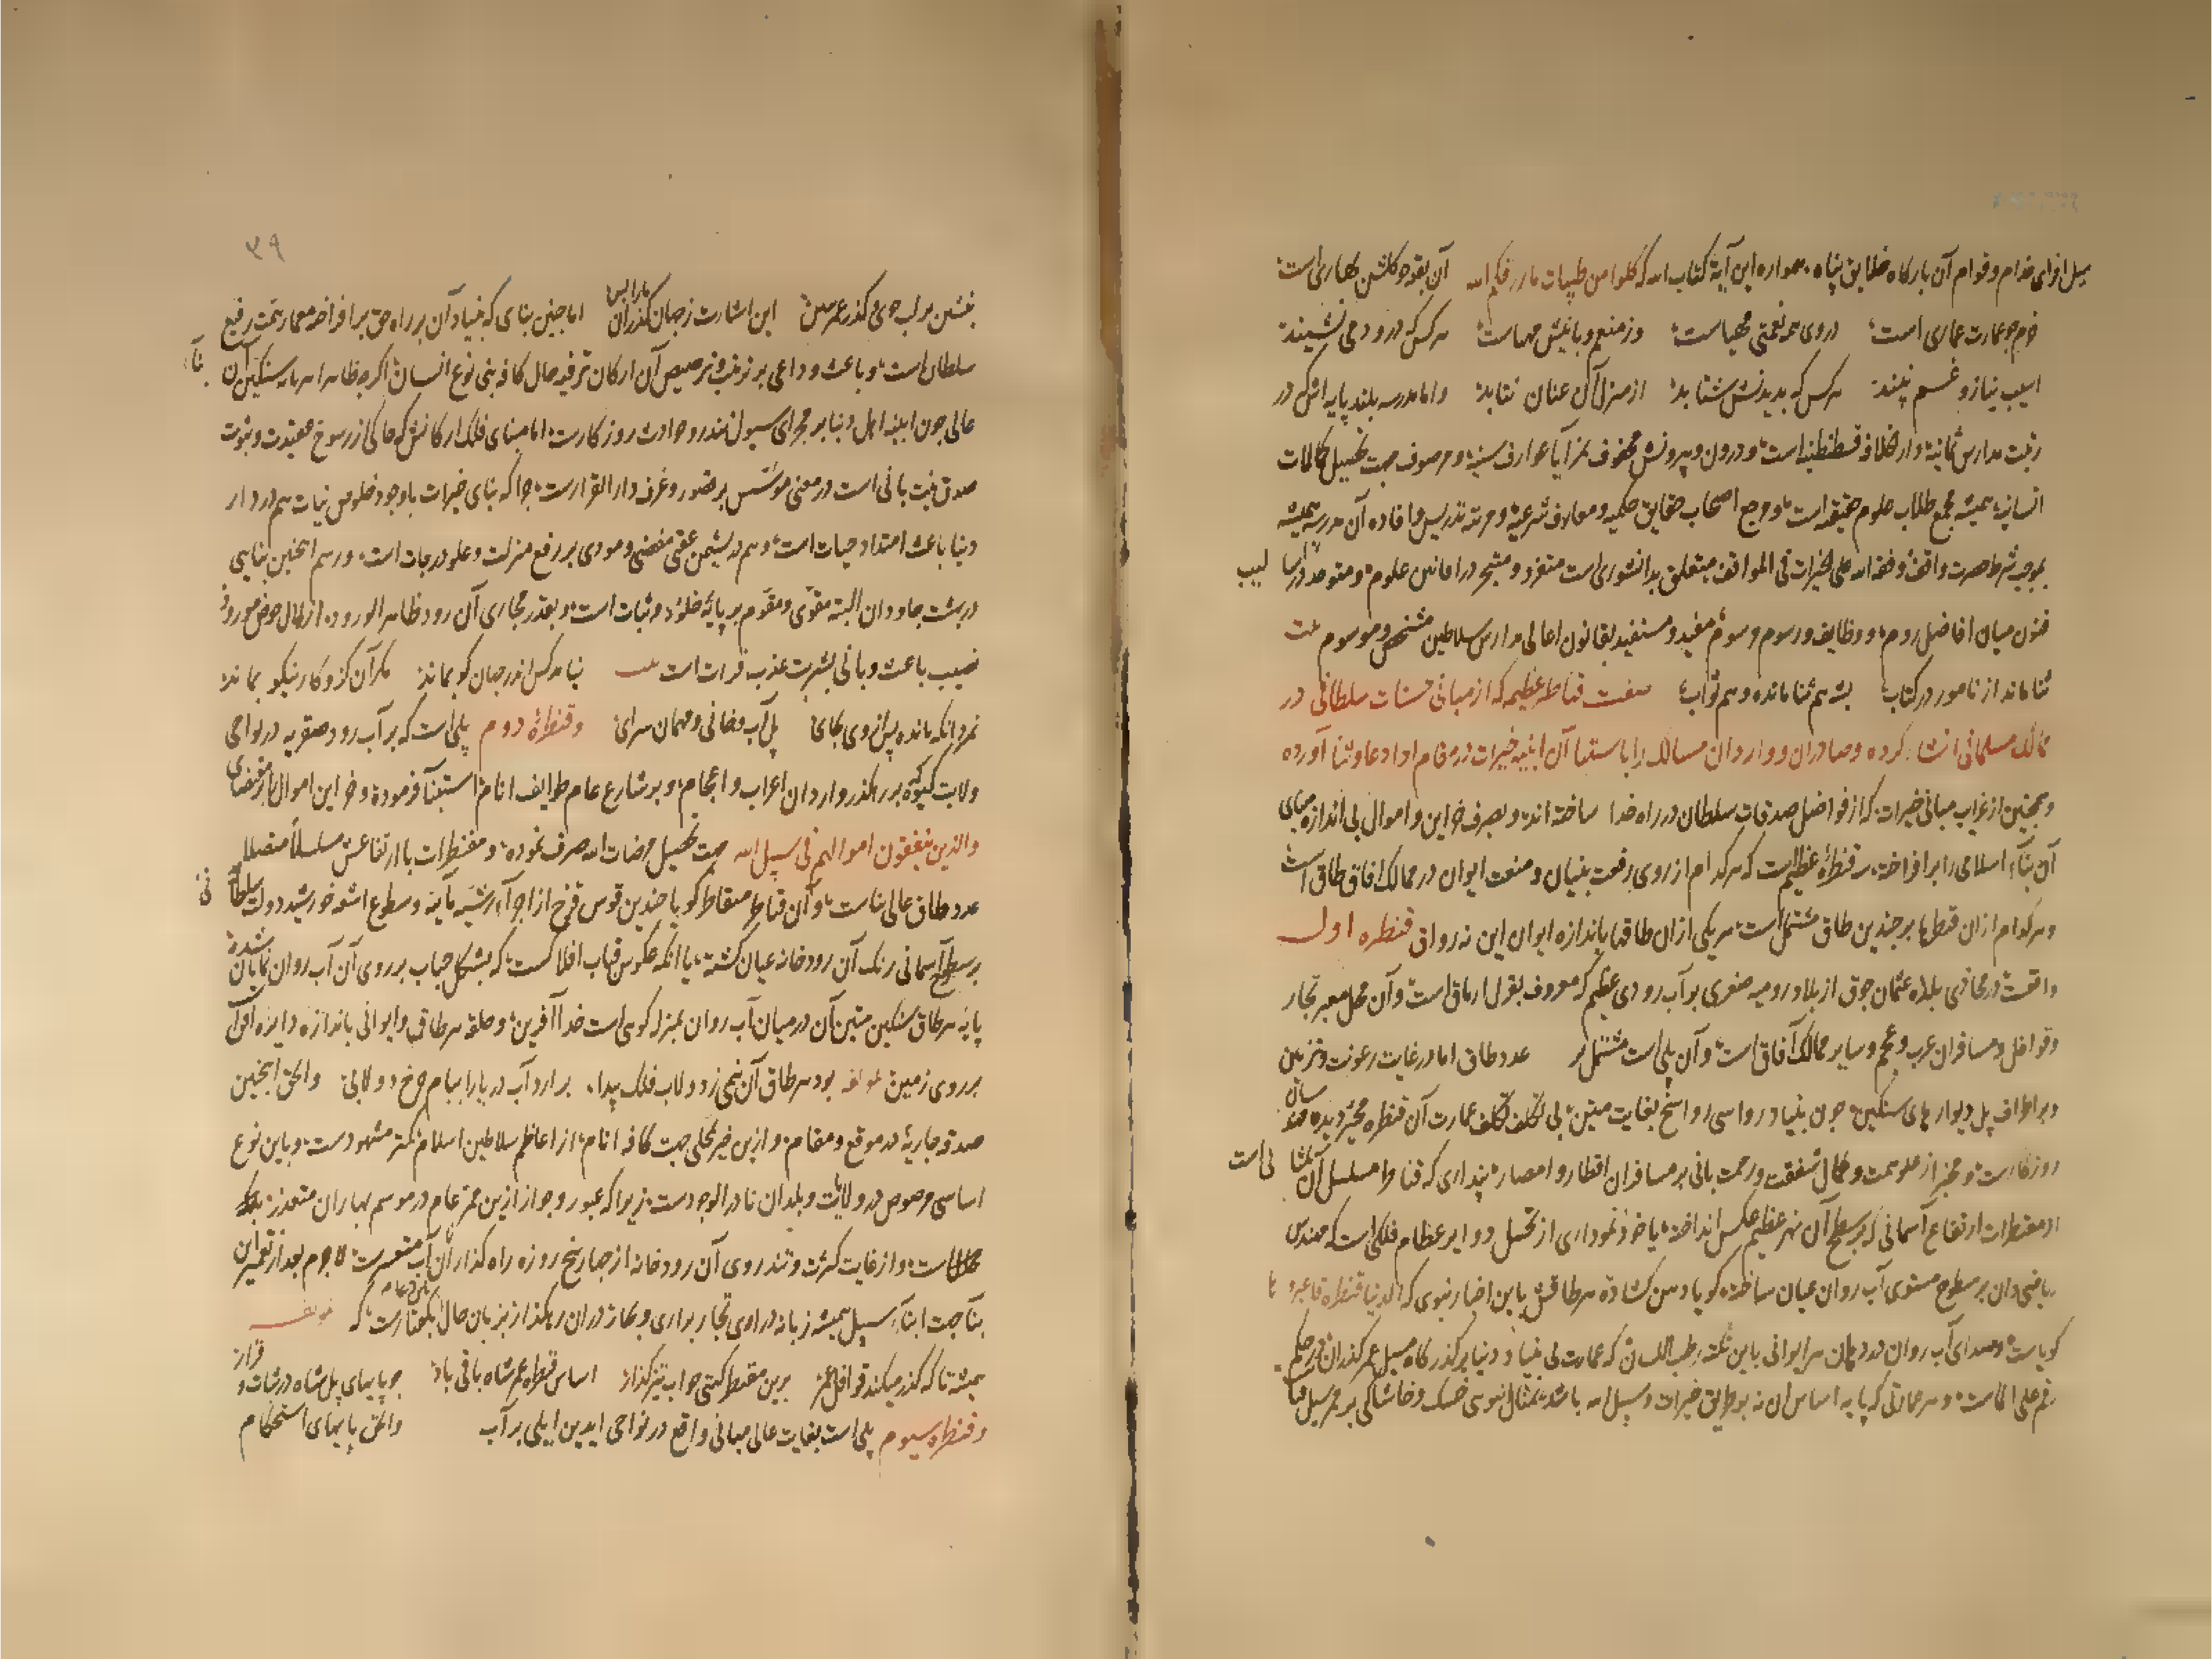 سبل افزای خدام و قوام آن بارکاه خلایق پناه همواره این آیة کتاب الله که کلوا من طیبات ما رزقکم الله آن بقعه چو کلشن بهاری است
خرم چو عمارت عماری است در وی همه نعمتی مهیاست وز منعم و با نیش مهماست هر کس که درو دمی نشیند
اسیب نیاز و غم نبیند هر کس که بدیدنش شتابد از منزل آن عنان نتابد و اما مدرسه بلند پایه اش که در
رتبت مدارس ثمانیة دار الخلافه قسطنطنیه است و درون و بیرونش محفوف بمزایا عوارف سنیه و موصوف جهت تحصیل کمالات
انسانیه همیشه مجمع طلاب علوم حقیقیه است و مرجع اصحاب حقایق حکمیه و معارف شرعیه و مرتبه تدریس و افاده آن مدرسه همیشه
بموجب شرط حضرت واقف وفقه الله علی الخیرات فی المواقف متعلق بدانشوری است متفرد و متبحر در افانین علوم و متوحد در اسالیب
فنون میان افاضل روم و وظایف و رسوم مفید و مستفید بقانون اعالی مدارس سلاطین مشخص و موسوم بیت
ثنا ماند از نامور در کتاب بشه هم ثنا مانده و هم ثواب صفت قناطر عظیمه که از مبانی حسنات سلطانی در
ممالک مسلمانی انشا کرده و صادران و واردان مسالک را باستیفا آن ابنیه خیرات در مقام ادا دعا و ثنا آورده
و همچنین از غرایب مبانی خیرات که از فواضل صدقات سلطان در راه خدا ساخته اند و بصرف خزاین و اموال بی اندازه مبنای
آن بناء اسلامی را برافراخته سه قنطرهٔ عظیم است که هر کدام از روی رفعت بنیان و منعت ایوان در ممالک افاق طاق است
و هر کدام ازان قنطرها بر چندین طاق مشتمل است هر یکی ازان طاقها باندازه ایوان این نه رواق قنطره اول
واقعست در محاذی بلده عثمان جوق از بلاد رومیه صغری بر آب رودی عظیم که معروف بقزل ارماق است و آن محل معبر تجار
و قوافل و مسافران عرب و عجم و سایر ممالک آفاق است و آن پلی است مشتمل بر عدد طاق اما در غایت رعونت و تزیین
و بر اطراف پل دیوارهای سنکین چون بنیاد رواسی رواسخ بغایت متین بی تکلف تکلف عمارت آن قنطره محیر دیده مسان
روزکارست و مخبر از علو همت و کمال شفقت و رحمت بانی بر مسافران اقطار و امصار پنداری که قناطر مسلسل آن تمثالی است
از مقنطرات ارتفاع آسمانی که بر سطح آن نهر عظیم عکس انداخته یا خود نموداری از تخیل دوایر عظام فلکی است که مهندس
ریاضی دان بر سطوح مستوی آب روان عیان ساخته کویا دهن کشاده هر طاقش باین اخبار نبوی که الدنیا قنطرة فاعبروا
کویاست و صدای آب روان در دهان هر ایوانی باین نکته رطب اللسان که عمارت بی بنیاد دنیا بر کذرکاه سیل عمر کذران در حکم
رقم علی الماست و هر عمارتی که پایه اساس ان نه بر طریق خیرات و سبیل الله باشد بمثال توده خسک و خاشاکی بر ممر سیل فنا
۳۹
بنشین بر لب جوی و کذر عمر ببین این اشارت ز جهان کذران ما را بس اما چنین بنای که بنیاد آن بر راه حق برافراخته معمار همت رفیع
سلطان است و باعث و داعی بر ترتیب و ترصیص آن ارکان ترفیه حال کافه بنی نوع انسان اکرچه ظاهرا سرمایه سنکین آن بنآء
عالی چون ابنیه اهل دنیا بر مجرای سیول تندرو حوادث روزکارست اما مبنای فلک ارکانش که حاکی از رسوخ عقیدت و ثبوت
صدق نیت بانی است در معنی مؤسس بر قصور و غرف دار القرارست چرا که بنای خیرات باوجود خلوص نیات هم در دار
دنیا باعث امتداد حیات است و هم در نشیمن عقبی مفضی و مودی بر رفع منزلت و علو درجات است و رسم اینچنین بنایی
در بهشت جاودان البته مقوی و مقوم بر پایهٔ خلود و ثبات است و بقدر مجاری آن رود ظاهر الورود از زلال حوض مورود
نصیب باعث و بانی بشربت عذب فرات است بیت نیامد کس اندر جهان کو بماند مکر آن کزو کار نیکو بماند
نمرد انکه ماند پس از وی بجای پل و آب و خانی و مهمان سرای و قنطرهٔ دوم پلی است که بر آب رود صقریه در نواحی
ولایت کیوه بر رهکذر واردان اعراب و اعجام و بر شارع عام طوایف انام استبنآ فرموده و خزاین اموال را بر مقتضای
والذین ینفقون اموالهم فی سبیل الله جهت تحصیل مرضات الله صرف نموده و مقنطرات با ارتفاعش مسلسلا متصلا
عدد طاق عالی بناست و آن قناطر متقاطر کویا چندین قوس قزح از اجزآء رشیه مآئیه و سطوع اشعه خورشید دولت سلطانی
بر سطح آسمانی رنک آن رودخانه عیان کشته یا انکه عکوس قباب افلاکست که بشکل حباب بر روی آن آب روان نمایان شده
پایه هر طاق سنکین متین آن در میان آب روان بمنزله کوهی است خدا آفرین و حلقه هر طاق و ایوانی باندازه دایره افق
بر روی زمین لمؤلفه بود هر طاق آن نیمی ز دولاب فلک پیدا برآرد آب دریا را ببام چرخ دولابی والحق اینچنین
صدقه جاریهٔ در موقع و مقام و ازین خیر محلی جهت کافه انام از اعاظم سلاطین اسلام کمتر مشهودست و باین نوع
اساسی مرصوص در ولایت و بلدان نادر الوجودست زیرا که عبور و جواز ازین ممر عام در موسم بهاران متعذر بلکه
محالست و از غایت کثرت و تندروی آن رودخانه از چهار پنج روزه راه کذار آن آب متعسرست لاجرم بعد از تعمیر این
بنا جهت ابناء سبیل همیشه زبانه در افواه تجار براری و بحار دران رهکذار بزبان حال باین دعا بکفتارست که لمؤلفه
همیشه تا که کذر میکند قوافل عمر برین مقنطر کیتی چو آب تیز کذار اساس قنطره عمر شاه باقی باد چو پایهای پل شاه در ثبات و قرار
و قنطره سیوم پلی است بغایت عالی مبانی واقع در نواحی ایدین ایلی بر آب والحق پایهای استحکام